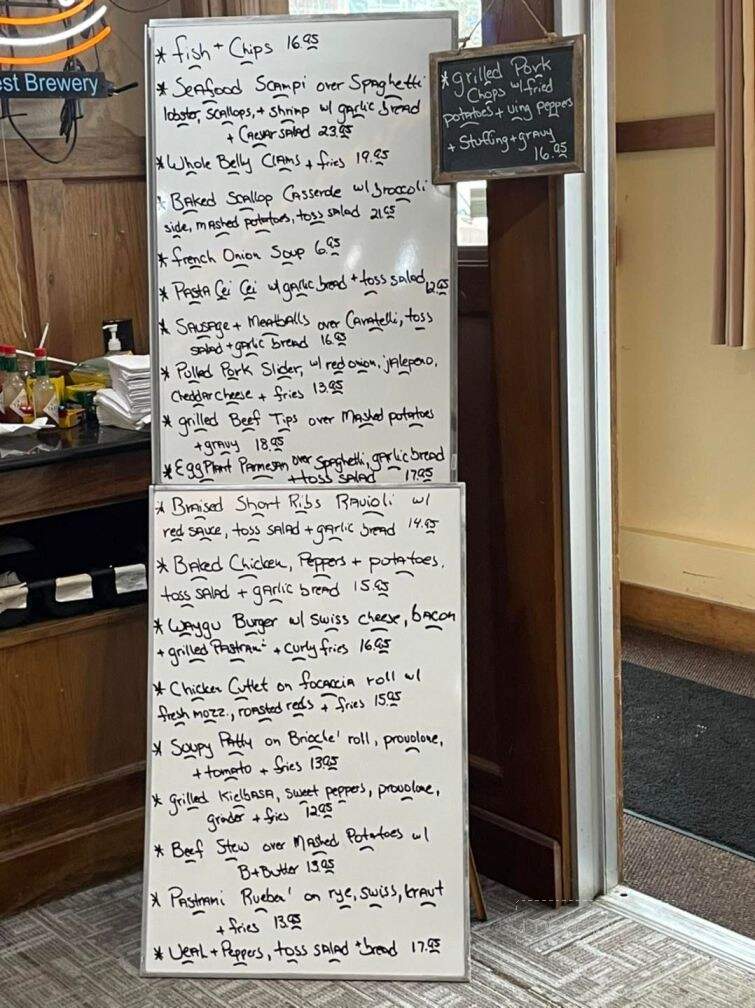 est Brewery
* fish + Chips 16.95
* Seafood Scampi over Spaghetti
lobster, scallops, + shrimp w/ garlic bread
+ Caesar salad 23.95
* Whole Belly Clams + fries 19.95
* Baked Scallop Casserole w/ broccoli
side, mashed potatoes, toss salad 21.95
* french Onion Soup 6.95
* Pasta Cei Cei w/ garlic bread + toss salad 12.95
* Sausage + Meatballs over Cavatelli, toss
salad + garlic bread 16.95
* Pulled Pork Slider, w/ red onion, jalepeno,
cheddar cheese + fries 13.95
* grilled Beef Tips over Mashed potatoes
+ gravy 18.95
* Eggplant Parmesan over Spaghetti, garlic bread
+ toss salad 17.95
* Braised Short Ribs Ravioli w/
red sauce, toss salad + garlic bread 14.95
* Baked Chicken, Peppers + potatoes,
toss salad + garlic bread 15.95
* Waygu Burger w/ swiss cheese, bacon
+ grilled Pastrami + curly fries 16.95
* Chicken Cutlet on focaccia roll w/
fresh mozz., roasted reds + fries 15.95
* Soupy Patty on Brioche' roll, provolone,
+ tomato + fries 13.95
* grilled Kielbasa, sweet peppers, provolone,
grinder + fries 12.95
* Beef Stew over Mashed Potatoes w/
B+Butter 13.95
* Pastrami Rueben' on rye, swiss, kraut
+ fries 13.95
* Veal + Peppers, toss salad + bread 17.95
* grilled Pork
Chops w/ fried
potatoes + ving peppers
+ Stuffing + gravy
16.95